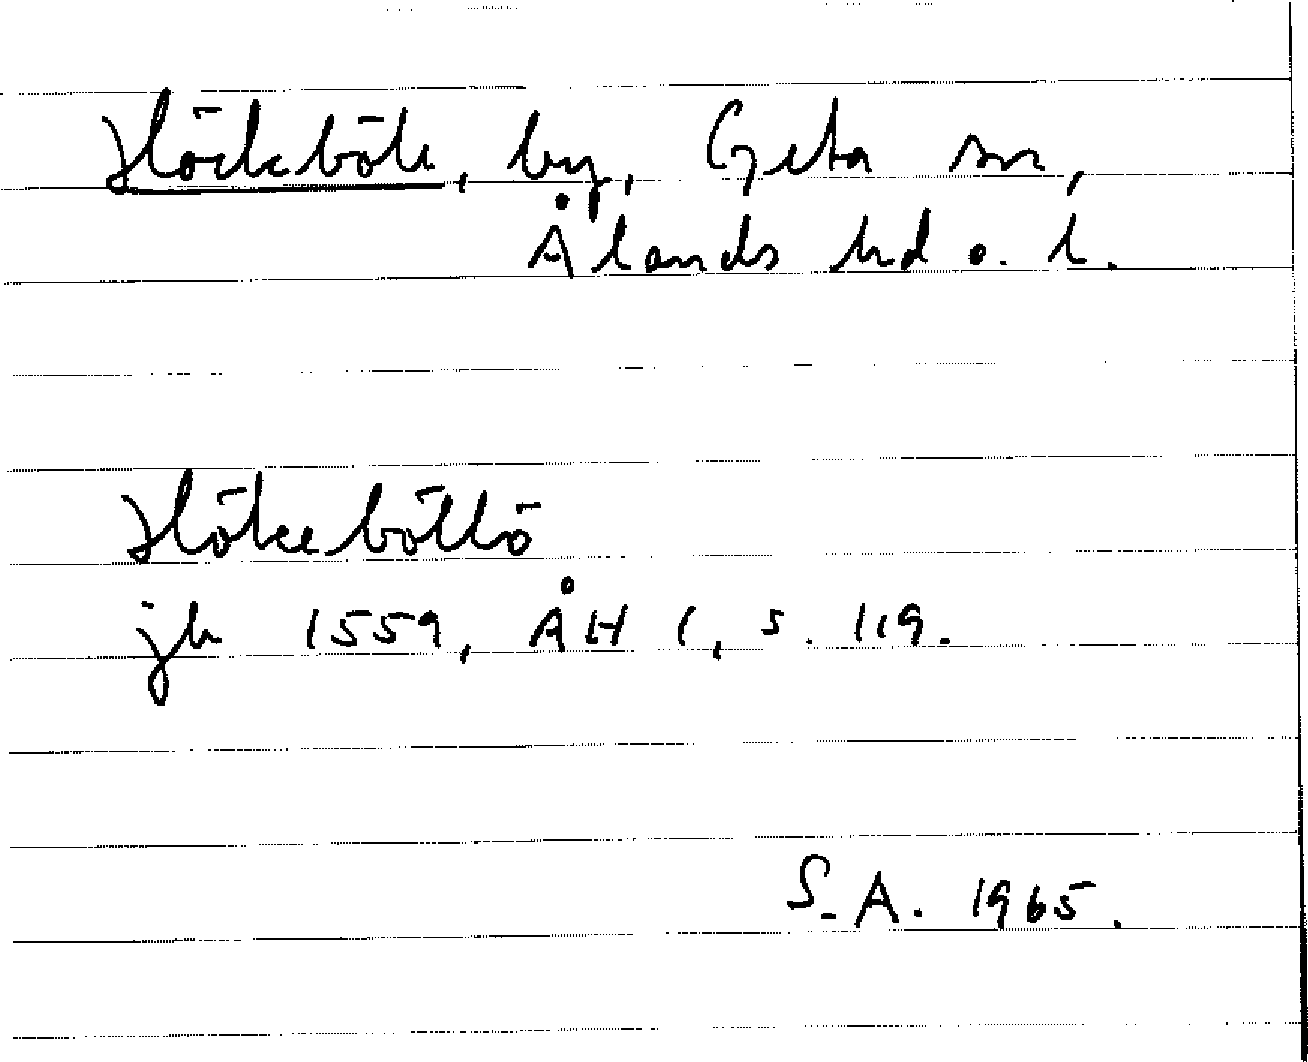 Höckböle, by, Geta sn,
Ålands hd o. l.
Hökeböllö
jb 1559, ÅH 1, s. 119.
S. A. 1965.